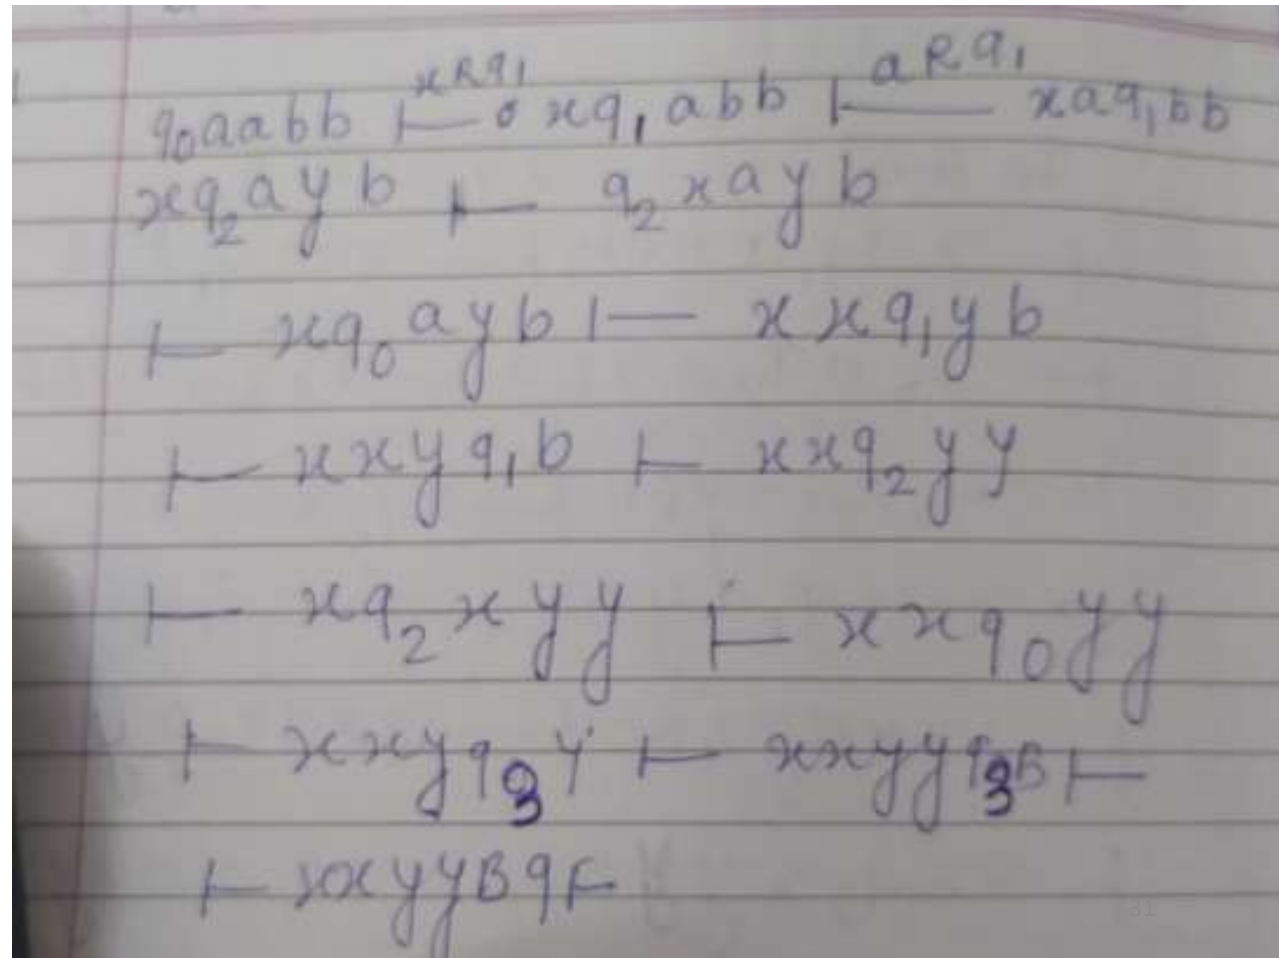 q₀aabb ⊢ xRq₁ xq₁abb ⊢ aRq₁ xaq₁bb
xq₂ayb ⊢ q₂xayb
⊢ xq₀ayb ⊢ xxq₁yb
⊢ xxyq₁b ⊢ xxq₂yy
⊢ xq₂xyy ⊢ xxq₀yy
⊢ xxyq₃y ⊢ xxyyq₃B ⊢
⊢ xxyyBqF
31